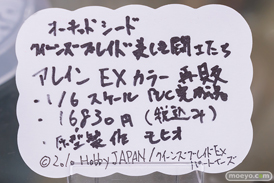 オーキッドシード
クイーンズブレイド 美しき闘士たち
アレイン EXカラー 再販
・1/6 スケール PVC完成品
・16830円(税込み)
・原型製作 モビオ
©2010 Hobby JAPAN/クイーンズブレイドEX
パートナーズ
moeyo.com